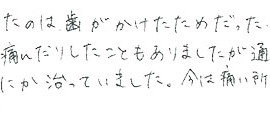 たのは歯がかけたためだった.
痛んだりしたこともありましたが通
にか治っていました。今は痛い所